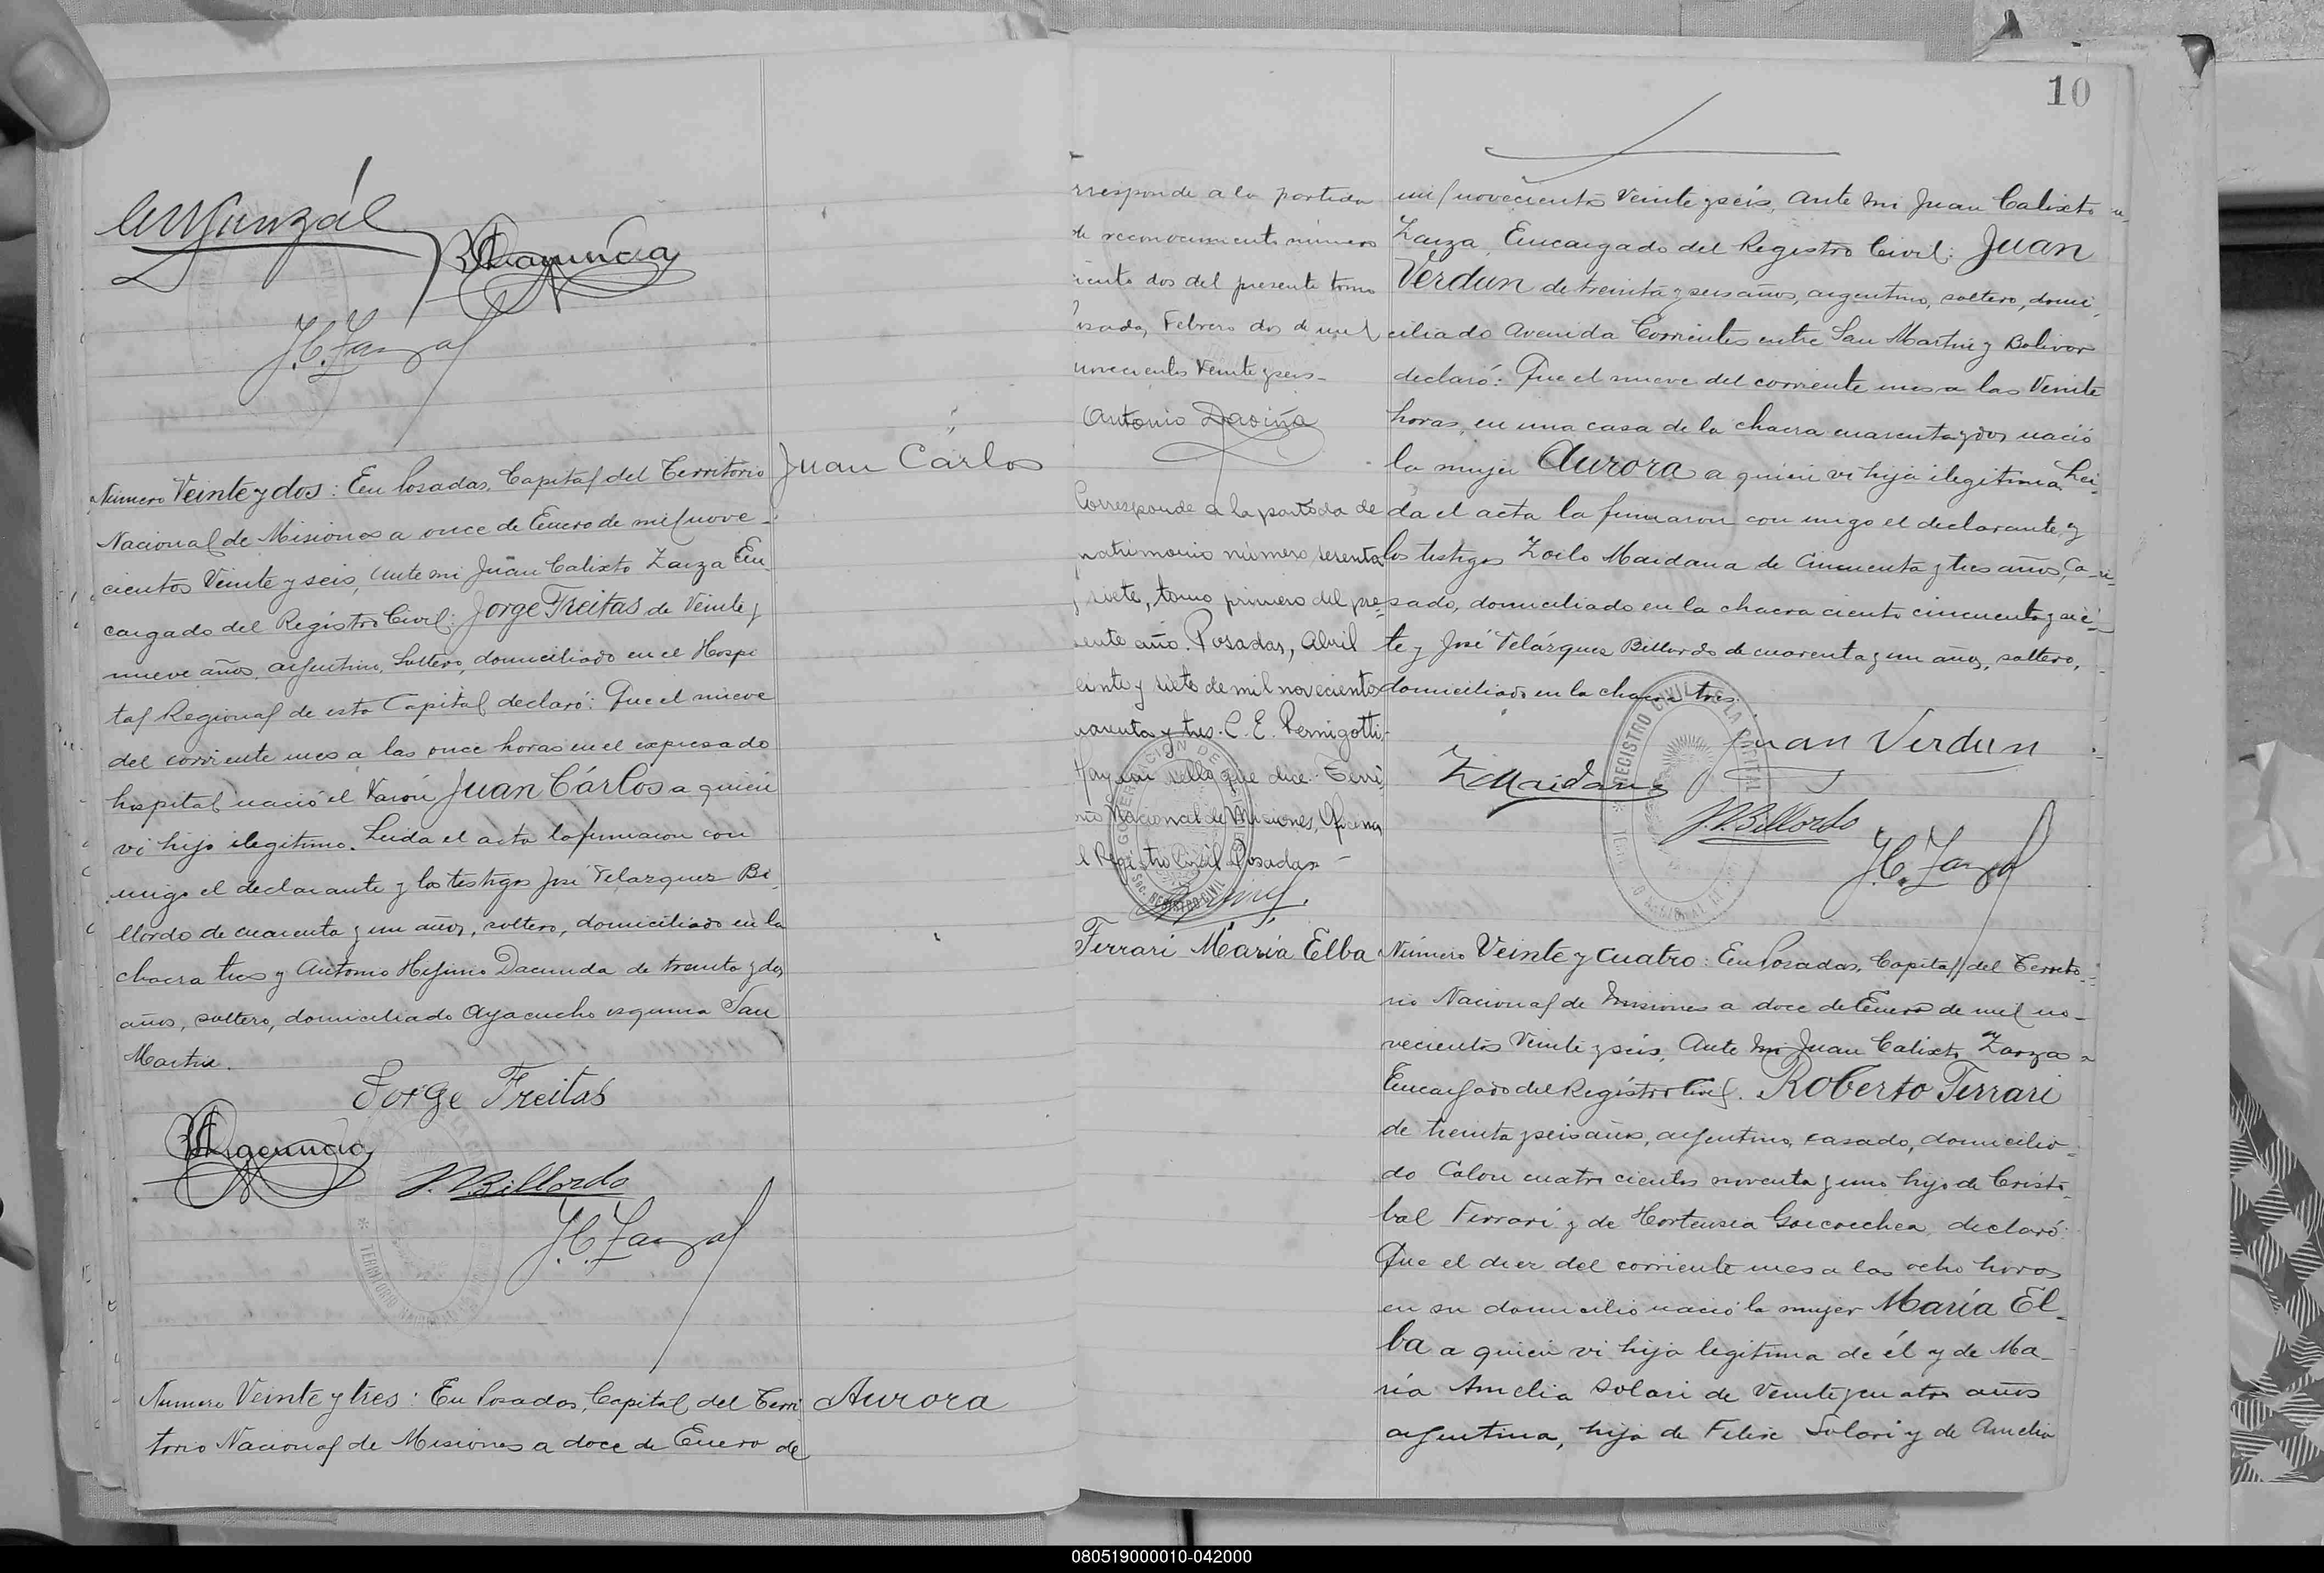 Número Veinte y dos: En Posadas, Capital del Territorio
Nacional de Misiones a once de Enero de mil nove-
cientos Veinte y seis, ante mi Juan Calixto Zarza En-
cargado del Registro Civil: Jorge Freitas de Veinte y
nueve años, argentino, Soltero, domiciliado en el Hospi
tal Regional de esta Capital declaró: Que el nueve
del corriente mes a las once horas en el expresado
hospital nació el Varón Juan Cárlos a quien
vi hijo ilegitimo. Leida el acta la firmaron con
migo el declarante y los testigos José Velazquez Bi-
llordo de cuarenta y un años, soltero, domiciliado en la
chacra tres y Antonio Higinio Dacunda de treinta y dos
años, soltero, domiciliado Ayacucho esquina San
Martin.
Jorge Freitas
J.V. Billordo
Juan Cárlos
Numero Veinte y tres: En Posadas, Capital del Terri
torio Nacional de Misiones a doce de Enero de
Aurora
10
rresponde a la partida
de reconocimiento número
iento dos del presente tomo
osadas, Febrero dos de mil
novecientos Veinte y seis-
Antonio Daviña
Corresponde a la partida de
matrimonio número sesenta
y siete, tomo primero del pre-
sente año. Posadas, Abril
einte y siete de mil novecientos
uarenta y tres. C. E. Pernigotti.
Hay un sello que dice: Terri-
rio Nacional de Misiones, Oficina
l Registro Civil Posadas-
mil novecientos Veinte y seis, ante mi Juan Calixto
Zarza, Encargado del Registro Civil: Juan
Verdun de treinta y seis años, argentino, soltero, domi-
ciliado Avenida Corrientes entre San Martin y Bolivar
declaró: Que el nueve del corriente mes a las Veinte
horas, en una casa de la chacra cuarenta y dos nació
la mujer Aurora a quien vi hija ilegitima. Lei-
da el acta la firmaron con migo el declarante y
los testigos Zoilo Maidana de Cincuenta y tres años, Ca-
sado, domiciliado en la chacra ciento cincuenta y sie-
te y José Velázquez Billordo de cuarenta y un años, soltero,
domiciliado en la chacra tres.
Juan Verdun
Z Maidana
J.V. Billordo
Ferrari María Elba
Número Veinte y cuatro: En Posadas, Capital del Territo-
rio Nacional de Misiones a doce de Enero de mil no-
vecientos Veinte y seis, Ante mi Juan Calixto Zarza
Encargado del Registro Civil. Roberto Ferrari
de treinta y seis años, argentino, casado, domicilia-
do Colon cuatro cientos noventa y uno hijo de Cristo-
bal Ferrari y de Hortensia Goicoechea, declaró:
Que el diez del corriente mes a las ocho horas
en su domicilio nació la mujer María El-
ba a quien vi hija legitima de él y de Ma-
ria Amelia Solari de Veinte y cuatro años
argentina, hija de Felix Solari y de Amelia
080519000010-042000